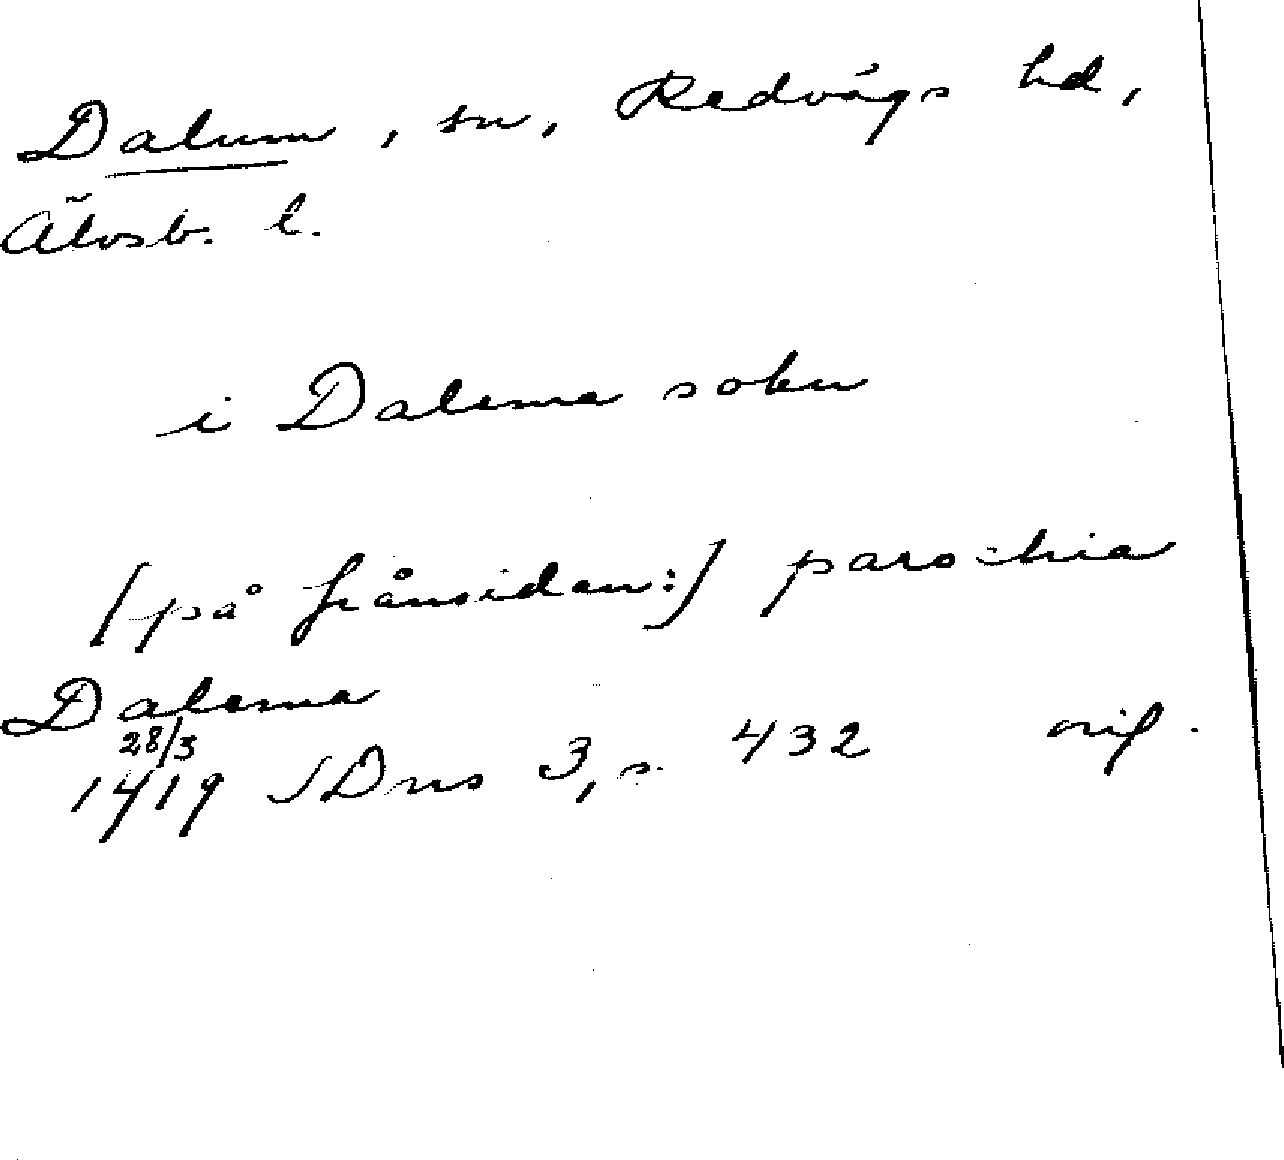 Dalum, sn, Redvägs hd,
Älvsb. l.
i Dalema sokn
[på frånsidan:] parochia
Dalema
28/3
1419 SDns 3, s. 432 orig.